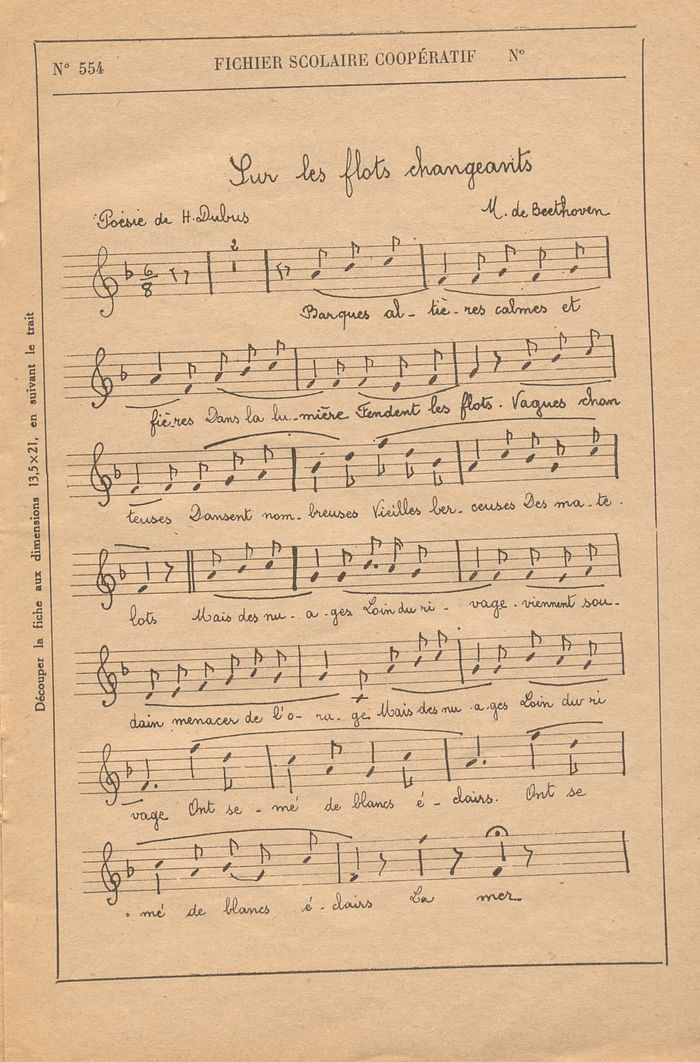 N° 554 FICHIER SCOLAIRE COOPÉRATIF N°
Sur les flots changeants
Poésie de H. Dubus M. de Beethoven
6/8 2
Barques al- tiè- res calmes et
fières Dans la lu-mière Fendent les flots. Vagues chan
teuses Dansent nom- breuses Vieilles ber- ceuses Des ma-te-
lots Mais des nu- a- ges Loin du ri- vage. viennent sou-
dain menacer de l'o- ra- ge Mais des nu-a-ges Loin du ri
vage Ont se- mé de blancs é- clairs. Ont se
mé de blancs é- clairs La mer
Découper la fiche aux dimensions 13,5×21, en suivant le trait